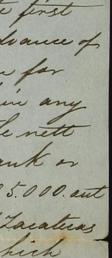 first
dvance of
for
any
nett
ank or
5.000. out
Zacatecas
which